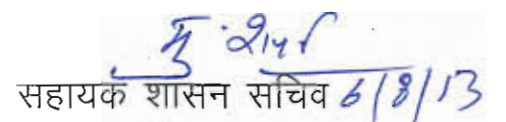 सहायक शासन सचिव 6/8/13